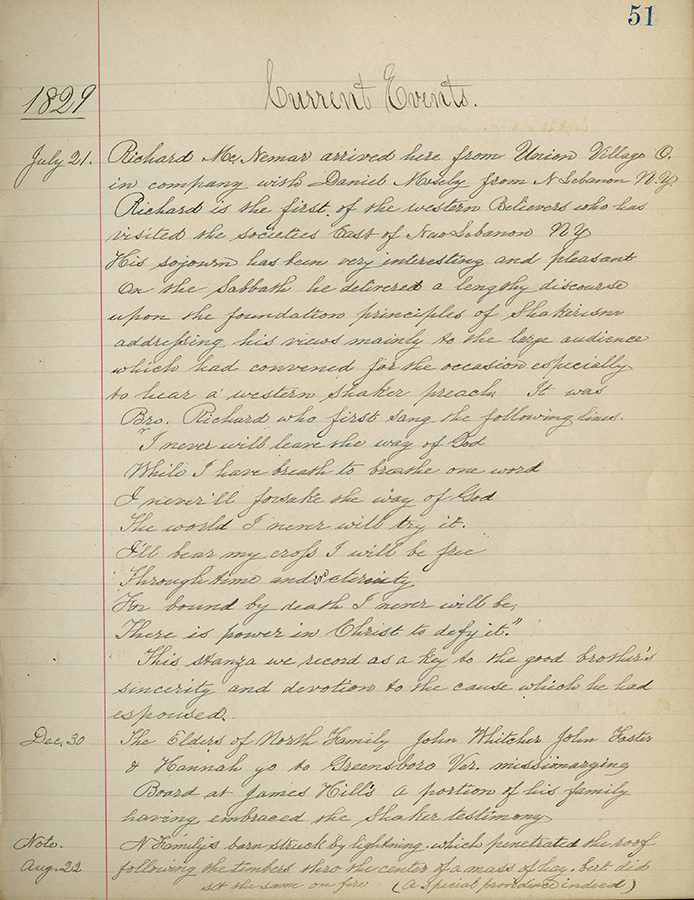 51
Current Events.
1829
July 21. Richard McNemar arrived here from Union Village O.
in company with Daniel Mosely from N Lebanon N.Y.
Richard is the first of the western Believers who has
visited the societies East of New Lebanon NY
His sojourn has been very interesting and pleasant
On the Sabbath he delivered a lengthy discourse
upon the foundation principles of Shakerism
addressing his views mainly to the large audience
which had convened for the occasion especially
to hear a western shaker preach. It was
Bro. Richard who first sang the following lines.
"I never will leave the way of God
While I have breath to breathe one word
I never'll forsake the way of God
The world I never will try it.
I'll bear my cross I will be free
Through time and eternity
For bound by death I never will be,
There is power in Christ to defy it."
This stanza we record as a key to the good brother's
sincerity and devotion to the cause which he had
espoused.
Dec. 30 The Elders of North Family John Whitcher John Foster
& Hannah go to Greensboro Ver. missionarying
Board at James Hill's a portion of his family
having embraced the Shaker testimony
Note. N Family's barn struck by lightning. which penetrated the roof
Aug. 22 following the timbers thro the center of a mass of hay. but did
set the same on fire (A special providence indeed)